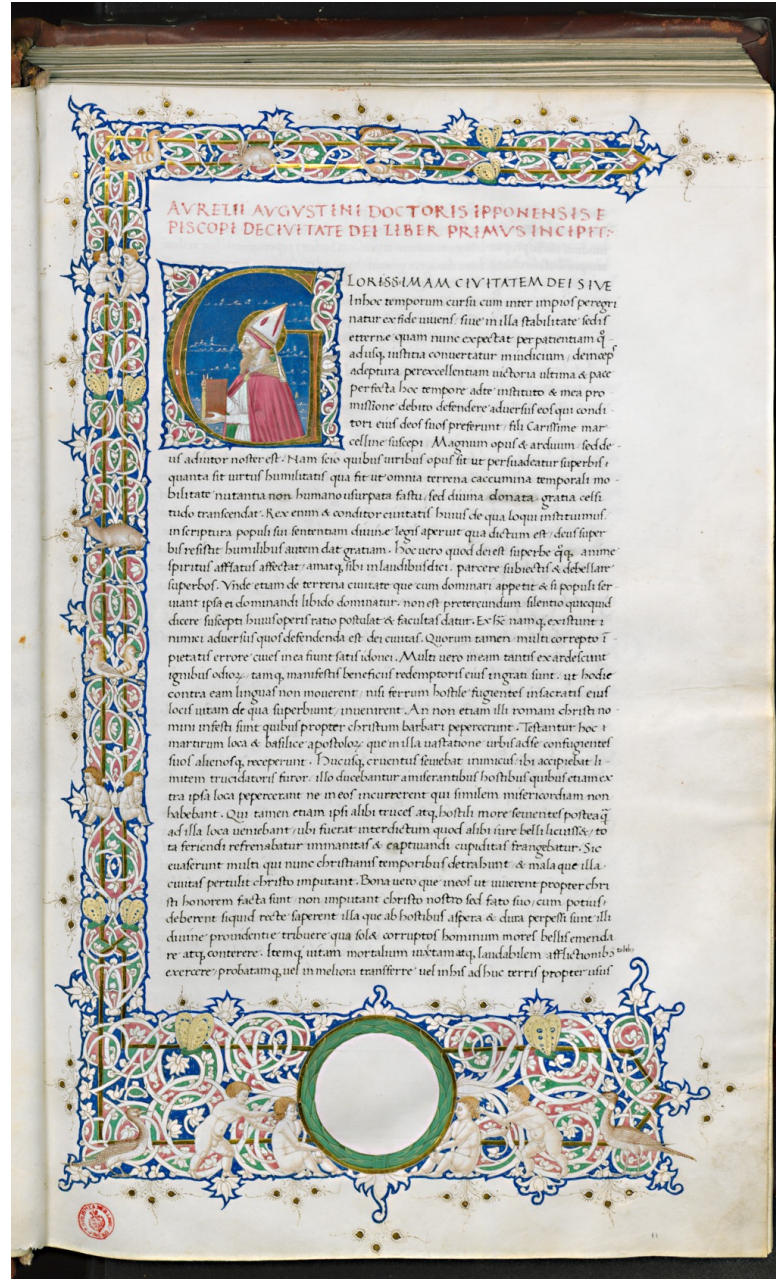 AVRELII AVGVSTINI DOCTORIS IPPONENSIS E
PISCOPI DECIVITATE DEI LIBER PRIMVS INCIPIT:
G LORISSIMAM CIVITATEM DEI SIVE
Inhoc temporum cursu cum inter impios peregri
natur ex fide uiuens: siue in illa stabilitate sedis
etterne quam nunc expectat per patientiam q̄
adusq, iustitia conuertatur in iudicium, deinceps
adeptura perexcellentiam uictoria ultima & pace
perfecta hoc tempore adte instituto & mea pro
missione debito defendere aduersus eos qui condi
tori eius deos suos preferunt, fili Carissime mar
celline suscepi. Magnum opus & arduum, sed de
us adiutor noster est. Nam scio quibus uiribus opus sit ut persuadeatur superbis,
quanta sit uirtus humilitatis qua fit ut omnia terrena caccumina temporali mo
bilitate nutantia non humano usurpata fastu, sed diuina donata gratia celsi
tudo transcendat. Rex enim & conditor ciuitatis huius de qua loqui instituimus
in scriptura populi sui sententiam diuine legis aperuit qua dictum est, deus super
bis resistit humilibus autem dat gratiam. Hoc uero quod dei est superbe q̄q, anime
spiritus afflatus affectat, amatq, sibi in laudibus dici. parcere subiectis & debellare
superbos. Vnde etiam de terrena ciuitate que cum dominari appetit & si populi ser
uiant ipsa ei dominandi libido dominatur. non est pretereundum silentio quicquid
dicere suscepti huius operis ratio postulat & facultas datur. Ex hc̄ namq, existunt i
nimici aduersus quos defendenda est dei ciuitas. Quorum tamen multi correpto ī
pietatis errore ciues in ea fiunt satis idonei. Multi uero in eam tantis exardescunt
ignibus odioꝝ, tamq, manifestis beneficiis redemptoris eius ingrati sunt. ut hodie
contra eam linguas non mouerent, nisi ferrum hostile fugientes in sacratis eius
locis uitam de qua superbiunt, inuenirent. An non etiam illi romani christi no
mini infesti sunt quibus propter christum barbari pepercerunt. Testantur hoc
martirum loca & basilice apostoloꝝ que in illa uastatione urbis ad se confugientes
suos alienosq, receperunt. Hucusq, cruentus seuiebat inimicus ibi accipiebat li
mitem trucidatoris furor. illo ducebantur amiserantibus hostibus quibus etiam ex
tra ipsa loca pepercerant ne in eos incurrerent qui similem misericordiam non
habebant. Qui tamen etiam ipsi alibi truces atq, hostili more seuientes postea q̄
ad illa loca ueniebant, ubi fuerat interdictum quod alibi iure belli licuiss&, to
ta feriendi refrenabatur immanitas & captiuandi cupiditas frangebatur. Sic
euaserunt multi qui nunc christianis temporibus detrahunt & mala que illa
ciuitas pertulit christo imputant. Bona uero que in eos ut uiuerent propter chri
sti honorem facta sunt non imputant christo nostro sed fato suo, cum potius
deberent siquid recte saperent illa que ab hostibus aspera & dura perpessi sunt illi
diuine prouidentie tribuere qua sol& corruptos hominum mores bellis emenda
re atq, conterere. Itemq, uitam mortalium iuxtam atq, laudabilem afflictionib᷒ talib᷒
exercere, probatamq, uel in meliora transferre uel in his adhuc terris propter usus